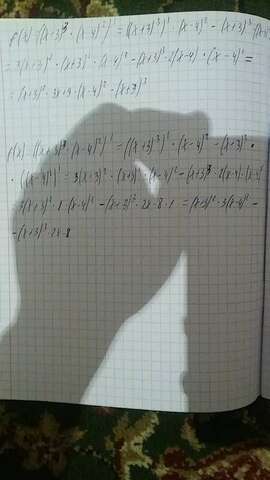 f'(x)=((x+3)³·(x-4)²)'=((x+3)³)'·(x-4)²-(x+3)³·
=3(x+3)²·(x+3)'·(x-4)²-(x+3)³·2(x-4)·(x-4)'=
=(x+3)²·3x+9·(x-4)²-(x+3)³
f'(x)=((x+3)³·(x-4)²)'=((x+3)³)'·(x-4)²-(x+3)³·
·((x-4)²)'=3(x+3)²·(x+3)'·(x-4)²-(x+3)³·2(x-4)·(x-4)'
3(x+3)²·1·(x-4)²-(x+3)³·2x-8·1=(x+3)²·3(x-4)²-
-(x+3)³·2x-8